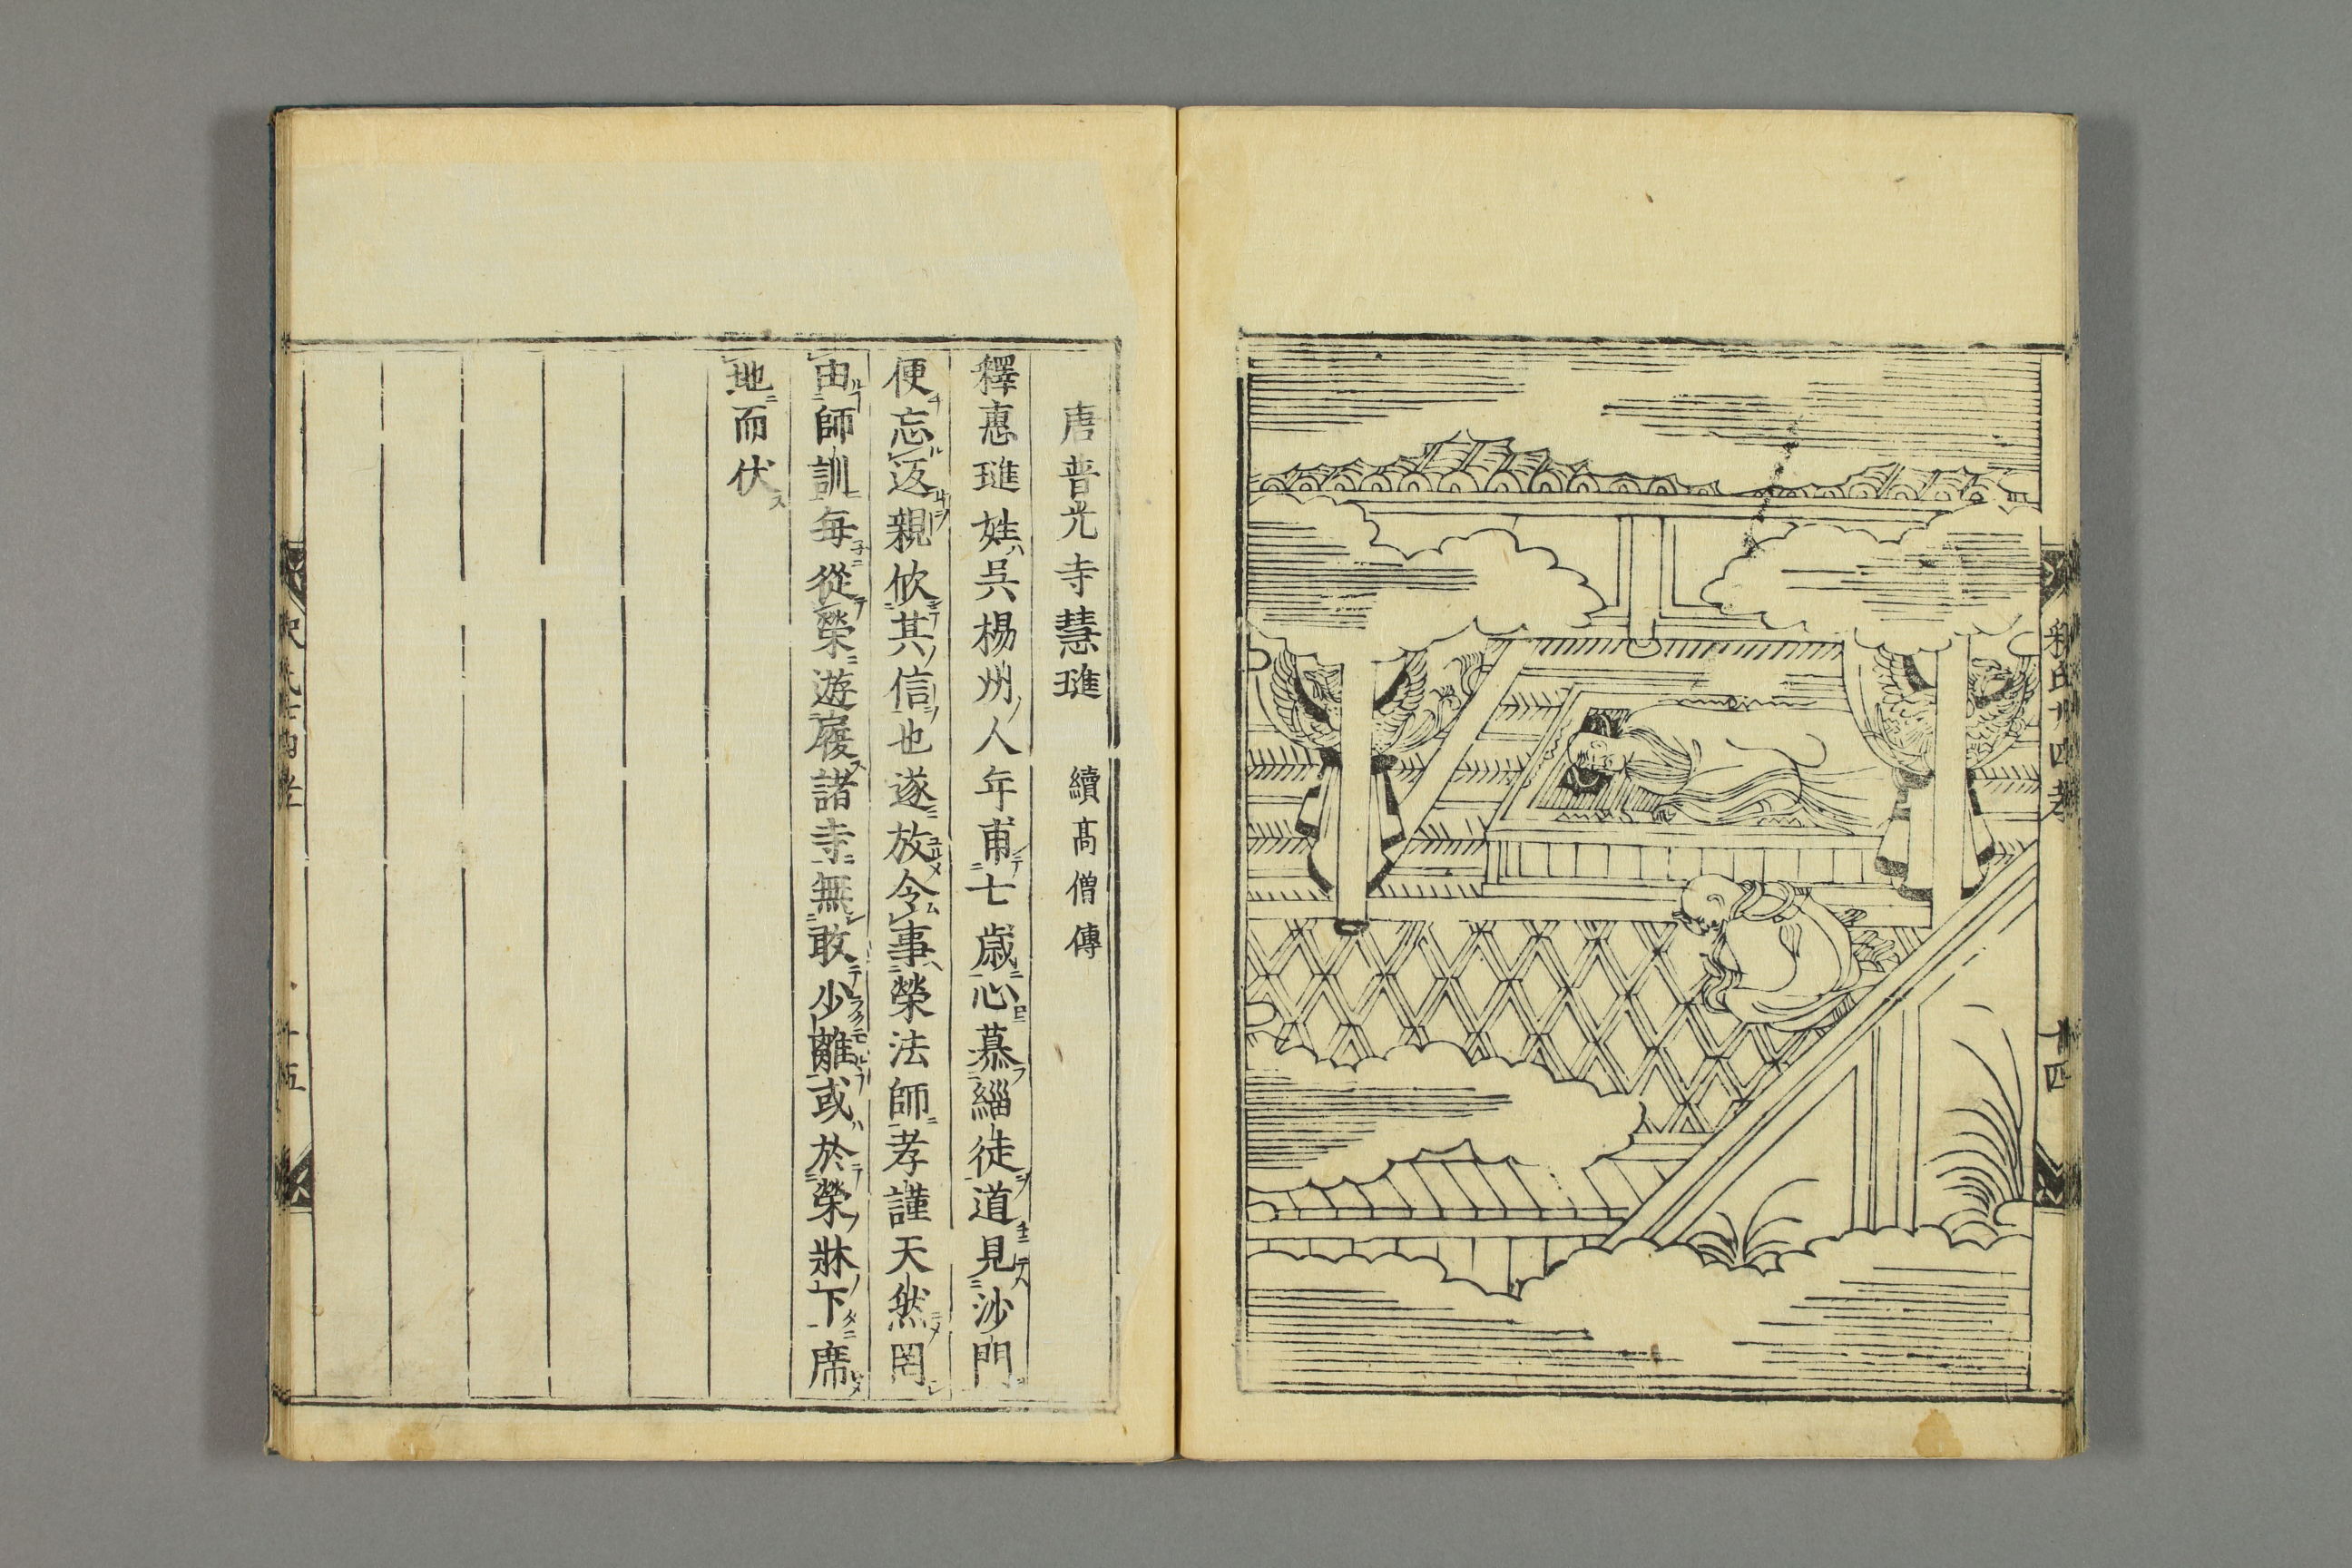 釋氏廿四孝
十四
唐普光寺慧璡　續髙僧傳
釋惠璡姓呉楊州人年甫七歳心慕緇徒道見沙門
便忘返親攸其信也遂放令事榮法師孝謹天然罔
由師訓毎從榮遊履諸寺無敢少離或於榮牀下席
地而伏
十五